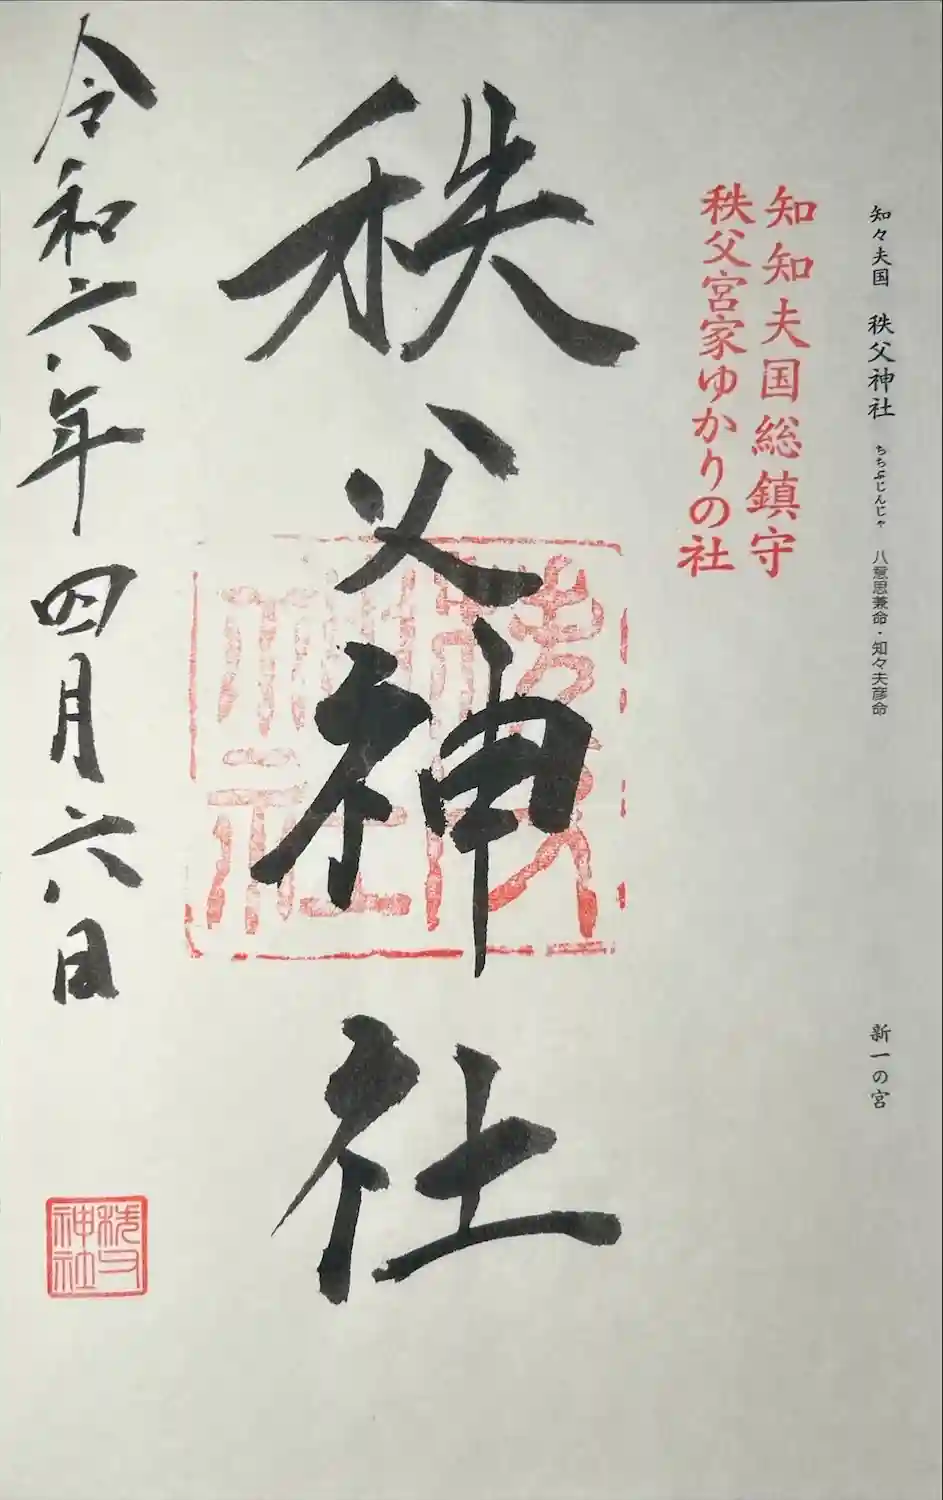 知々夫国 秩父神社 ちちぶじんじゃ 八意思兼命・知々夫彦命 新一の宮
知知夫国総鎮守
秩父宮家ゆかりの社
秩父神社
秩父神社
令和六年四月六日
秩父神社